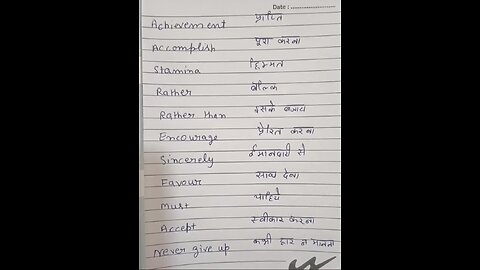 Date :
Achievement प्राप्ति
Accomplish पूरा करना
Stamina हिम्मत
Rather बल्कि
Rather then इसके बजाय
Encourage प्रेरित करना
Sincerely ईमानदारी से
Favour साथ देना
Must चाहिये
Accept स्वीकार करना
Never give up कभी हार न मानना